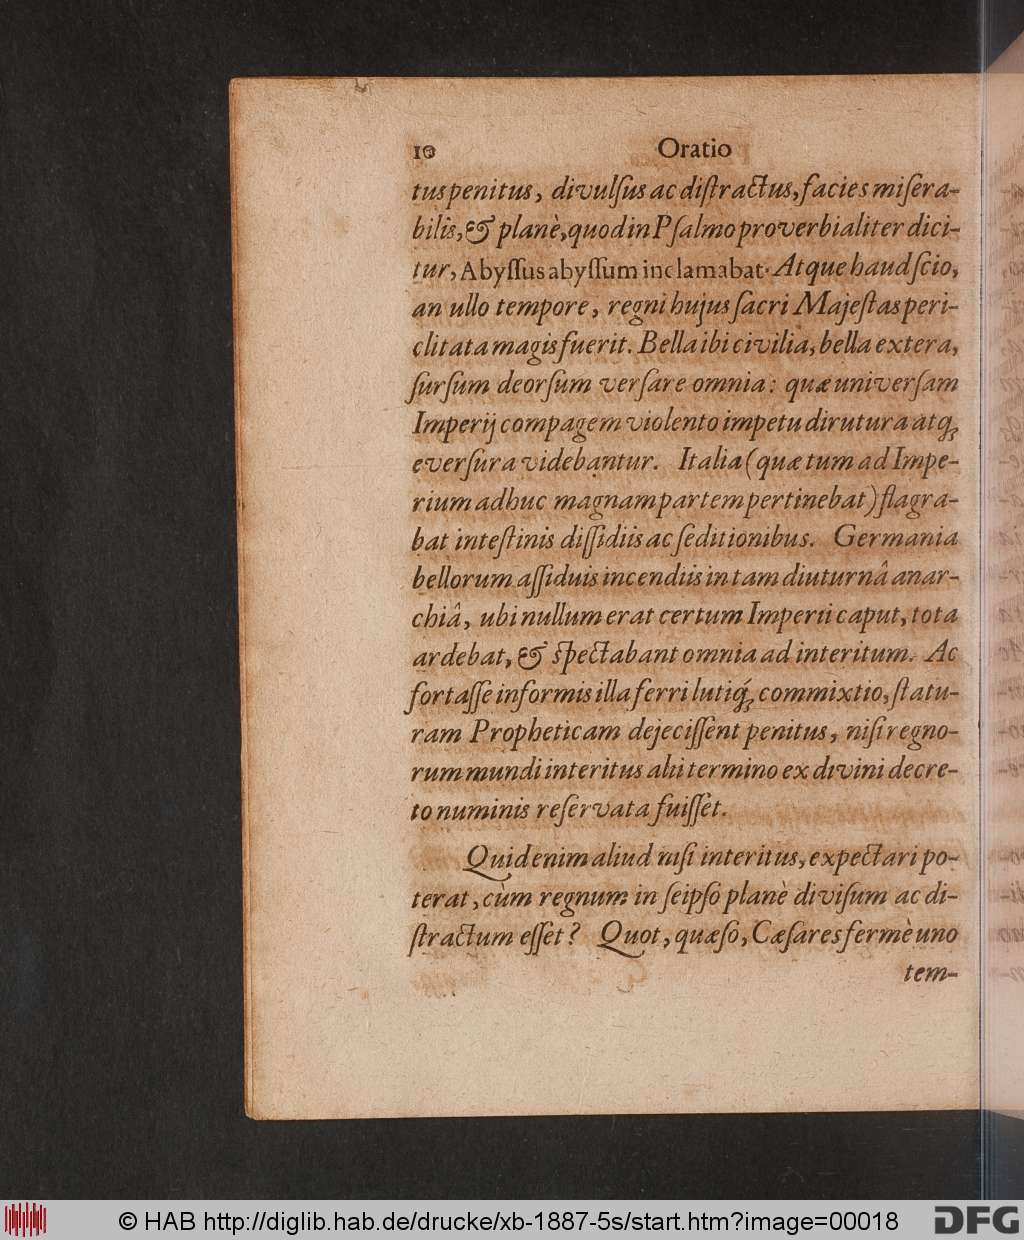 10 Oratio
tus penitus, divulſus ac diſtractus, facies miſera-
bilis, & planè, quod in Pſalmo proverbialiter dici-
tur, Abyſſus abyſſum inclamabat. Atque haud ſcio,
an ullo tempore, regni hujus ſacri Majeſtas peri-
clitata magis fuerit. Bella ibi civilia, bella extera,
ſurſum deorſum verſare omnia: quæ univerſam
Imperij compagem violento impetu dirutura atq;
everſura videbantur. Italia (quæ tum ad Impe-
rium adhuc magnam partem pertinebat) flagra-
bat inteſtinis diſſidiis ac ſeditionibus. Germania
bellorum aſſiduis incendiis in tam diuturnâ anar-
chiâ, ubi nullum erat certum Imperii caput, tota
ardebat, & ſpectabant omnia ad interitum. Ac
fortaſſe informis illa ferri lutiq́; commixtio, ſtatu-
ram Propheticam dejeciſſent penitus, niſi regno-
rum mundi interitus alii termino ex divini decre-
to numinis reſervata fuiſſet.
Quid enim aliud niſi interitus, expectari po-
terat, cùm regnum in ſeipſo planè diviſum ac di-
ſtractum eſſet? Quot, quæſo, Cæſares fermè uno
tem-
© HAB http://diglib.hab.de/drucke/xb-1887-5s/start.htm?image=00018
DFG